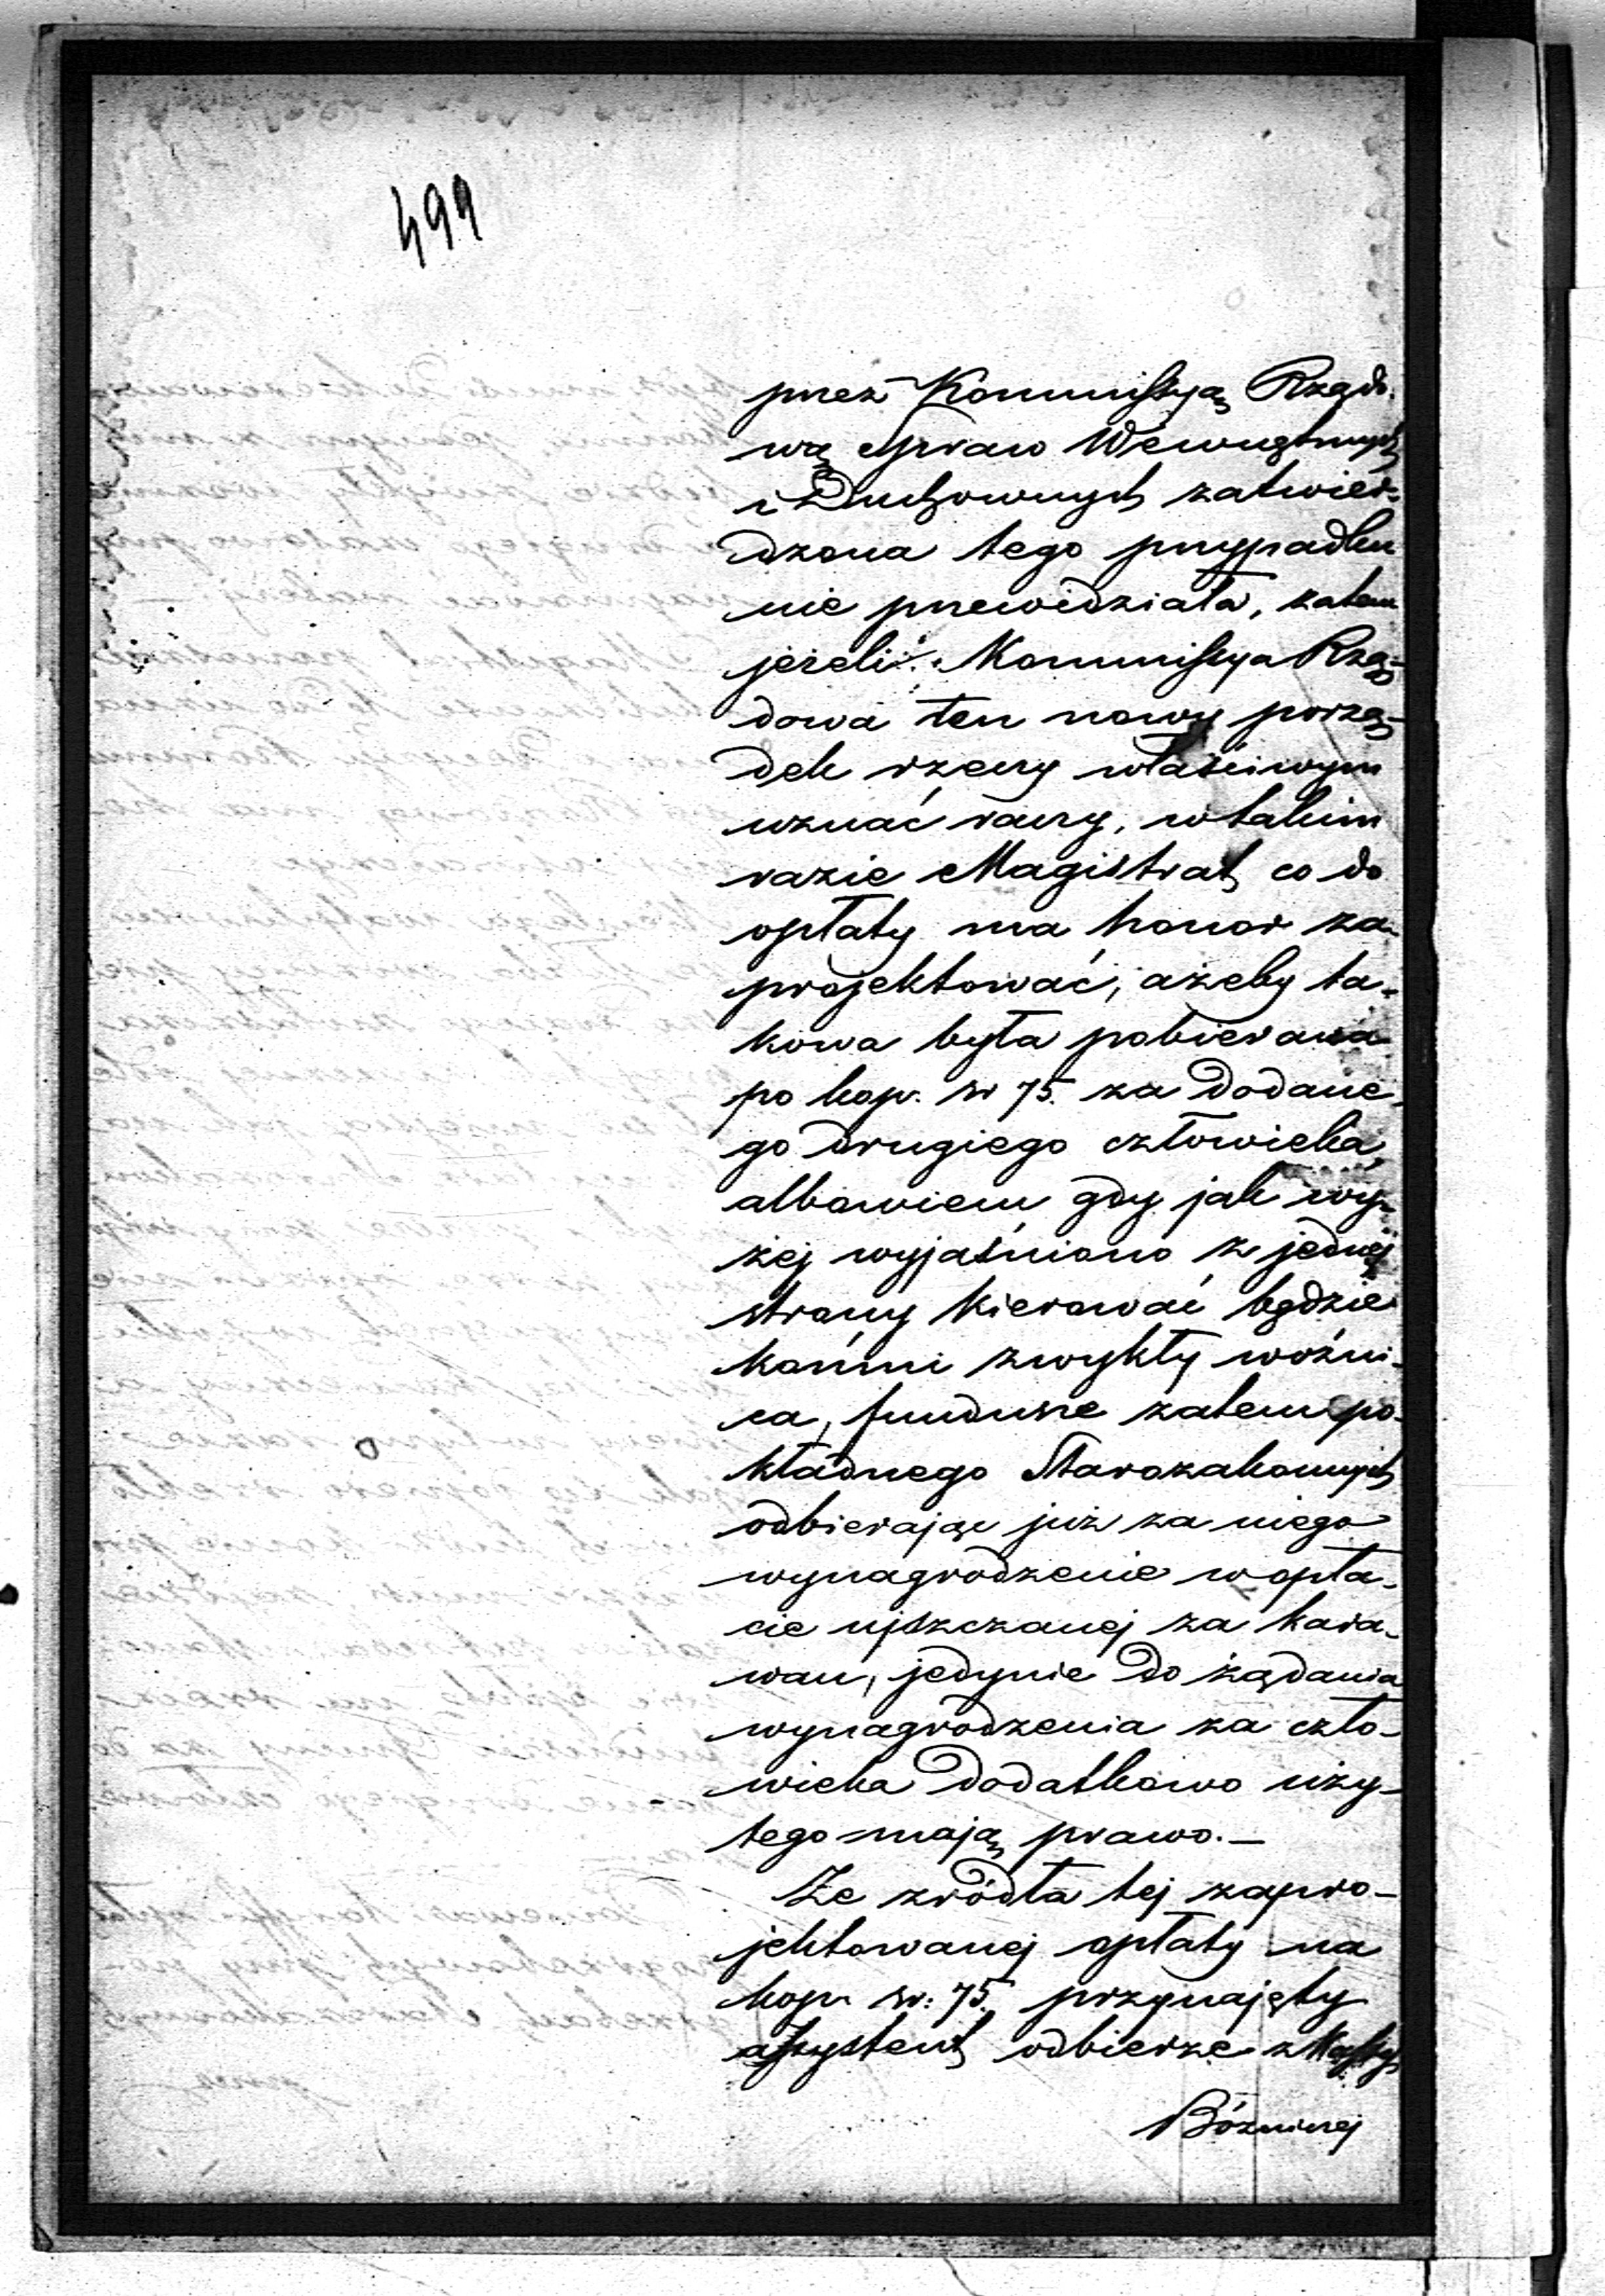 499
przez Kommissyą Rządo-
wą Spraw Wewnętrznych
i Duchownych zatwier-
dzona tego przypadku
nie przewidziała, zatem
jeżeli Kommissya Rzą-
dowa ten nowy porzą-
dek rzeczy właściwym
uznać raczy, w takim
razie Magistrat co do
opłaty ma honor za-
projektować, ażeby ta-
kowa była pobierana
po kop. sr 75. za dodane-
go drugiego człowieka,
albowiem gdy jak wy-
żej wyjaśniono z jednej
strony kierować będzie
końmi zwykły woźni-
ca, fundusze zatem po-
kładnego Starozakonnych
odbierając już za niego
wynagrodzenie w opła-
cie ujszczanej za kara-
wan, jedynie do żądania
wynagrodzenia za czło-
wieka dodatkowo uży-
tego mają prawo.—
Ze źródła tej zapro-
jektowanej opłaty na
kop. sr: 75. przynajęty
assystent odbierze z Kassy
Bóżniczej